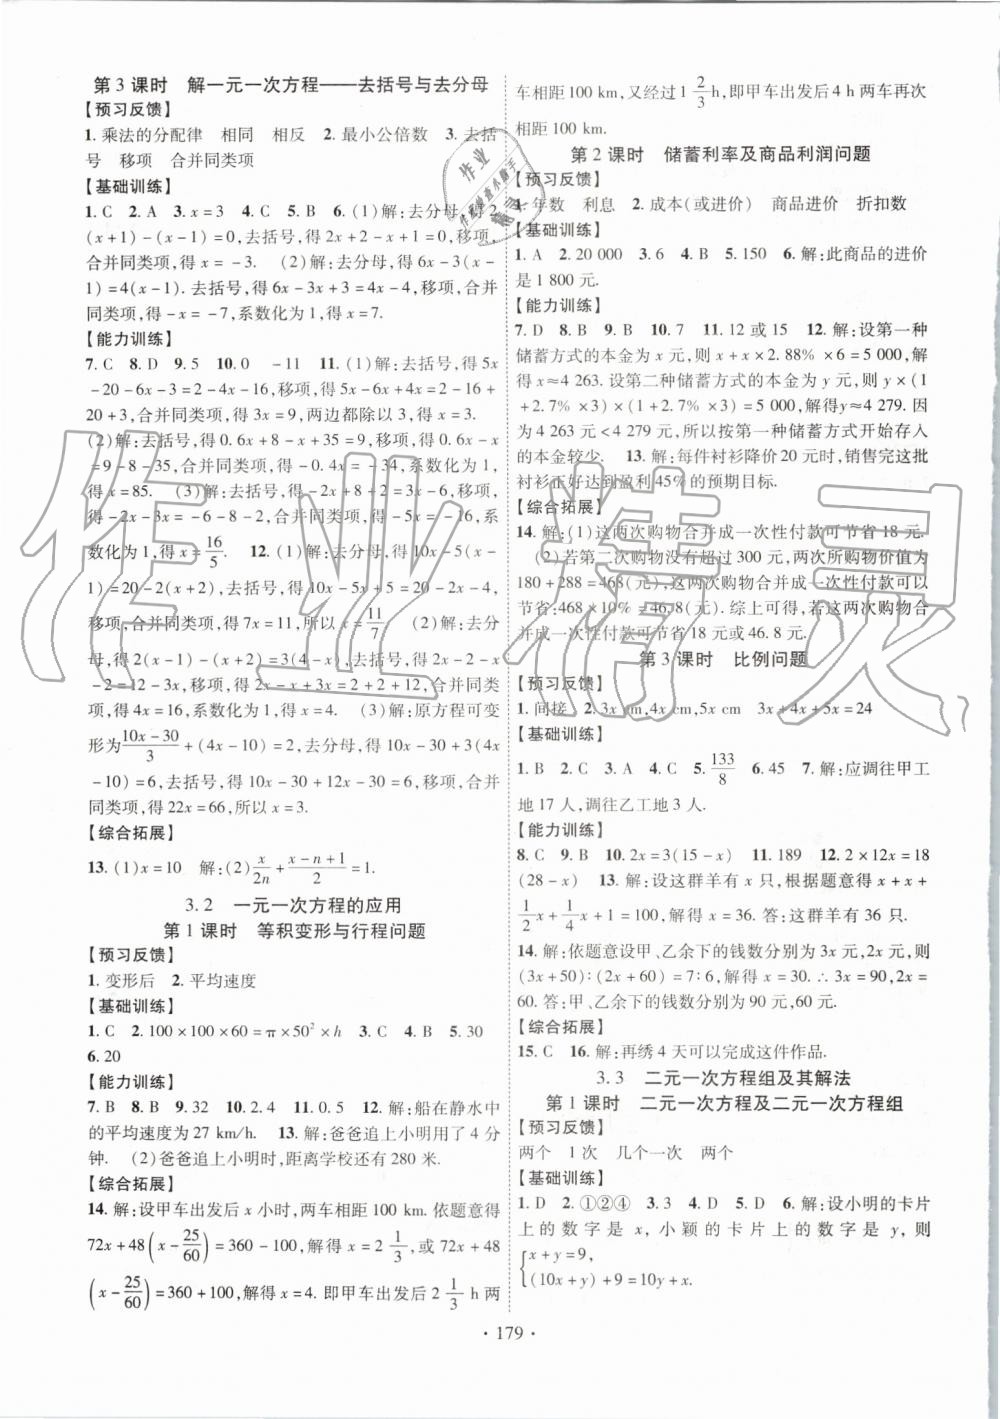 第 3 课时　解一元一次方程——去括号与去分母
【预习反馈】
1. 乘法的分配律　相同　相反　2. 最小公倍数　3. 去括
号　移项　合并同类项
【基础训练】
1. C　2. A　3. x=3　4. C　5. B　6. (1)解:去分母,得 2
(x+1)-(x-1)=0,去括号,得 2x+2-x+1=0,移项,
合并同类项,得 x=-3.　(2)解:去分母,得 6x-3(x-
1)=4(x-1),去括号,得 6x-3x+3=4x-4,移项,合并
同类项,得 -x=-7,系数化为 1,得 x=7.
【能力训练】
7. C　8. D　9. 5　10. 0　-11　11. (1)解:去括号,得 5x
-20-6x-3=2-4x-16,移项,得 5x-6x+4x=2-16+
20+3,合并同类项,得 3x=9,两边都除以 3,得 x=3.
(2)解:去括号,得 0.6x+8-x+35=9,移项,得 0.6x-x
=9-8-35,合并同类项,得 -0.4x=-34,系数化为 1,
得 x=85.　(3)解:去括号,得 -2x+8+2=-3x-6,移项,
得 -2x-3x=-6-8-2,合并同类项,得 -5x=-16,系
数化为 1,得 x=16/5.　12. (1)解:去分母,得 10x-5(x-
1)=20-2(x+2),去括号,得 10x-5x+5=20-2x-4,
移项,合并同类项,得 7x=11,所以 x=11/7　(2)解:去分
母,得 2(x-1)-(x+2)=3(4-x),去括号,得 2x-2-x-
2=12-3x,移项,得 2x-x+3x=2+2+12,合并同类项,得
4x=16,系数化为 1,得 x=4.　(3)解:原方程可变
形为(10x-30)/3+(4x-10)=2,去分母,得 10x-30+3(4x-
10)=6,去括号,得 10x-30+12x-30=6,移项,合并
同类项,得 22x=66,所以 x=3.
【综合拓展】
13. (1)x=10　解:(2)x/2n+(x-n+1)/2=1.
3.2　一元一次方程的应用
第 1 课时　等积变形与行程问题
【预习反馈】
1. 变形后　2. 平均速度
【基础训练】
1. C　2. 100×100×60=π×50²×h　3. C　4. B　5. 30
6. 20
【能力训练】
7. B　8. B　9. 32　10. 2.4　11. 0.5　12. 解:船在静水中
的平均速度为 27 km/h.　13. 解:爸爸追上小明用了 4 分
钟.　(2)爸爸追上小明时,距离学校还有 280 米.
【综合拓展】
14. 解:设甲车出发后 x 小时,两车相距 100 km. 依题意得
72x+48(x-25/60)=360-100,解得 x=2 1/3,或 72x+48
(x-25/60)=360+100,解得 x=4. 即甲车出发后 2 1/3 h 两
车相距 100 km,又经过 1 2/3 h,即甲车出发后 4 h 两车再次
相距 100 km.
第 2 课时　储蓄利率及商品利润问题
【预习反馈】
1. 年数　利息　2. 成本(或进价)　商品进价　折扣数
【基础训练】
1. A　2. 20 000　3. 6　4. B　5. 150　6. 解:此商品的进价
是 1 800 元.
【能力训练】
7. D　8. B　9. B　10. 7　11. 12 或 15　12. 解:设第一种
储蓄方式的本金为 x 元,则 x+x×2.88%×6=5 000,解
得 x≈4 263. 设第二种储蓄方式的本金为 y 元,则 y×(1
+2.7%×3)×(1+2.7%×3)=5 000,解得y≈4 279. 因
为 4 263 元<4 279 元,所以按第一种储蓄方式开始存入
的本金较少.　13. 解:每件衬衫降价 20 元时,销售完这批
衬衫正好达到盈利45%的预期目标.
【综合拓展】
14. 解:(1)这两次购物合并成一次性付款可节省 18 元.
(2)若第二次购物没有超过 300 元,两次所购物价值为
180+288=468(元),这两次购物合并成一次性付款可以
节省:468×10%=46.8(元). 综上可得,若这两次购物合
并成一次性付款可节省 18 元或 46.8 元.
第 3 课时　比例问题
【预习反馈】
1. 间接　2. 3x cm,4x cm,5x cm　3x+4x+5x=24
【基础训练】
1. B　2. C　3. A　4. C　5. 133/8　6. 45　7. 解:应调往甲工
地 17 人,调往乙工地 3 人.
【能力训练】
8. C　9. B　10. 2x=3(15-x)　11. 189　12. 2×12x=18
(28-x)　13. 解:设这群羊有 x 只,根据题意得 x+x+
1/2x+1/4x+1=100. 解得 x=36. 答:这群羊有 36 只.
14. 解:依题意设甲、乙余下的钱数分别为 3x 元,2x 元,则
(3x+50):(2x+60)=7:6,解得 x=30. ∴3x=90,2x=
60. 答:甲、乙余下的钱数分别为 90 元,60 元.
【综合拓展】
15. C　16. 解:再绣 4 天可以完成这件作品.
3.3　二元一次方程组及其解法
第 1 课时　二元一次方程及二元一次方程组
【预习反馈】
两个　1 次　几个一次　两个
【基础训练】
1. D　2. ①②④　3. 3　4. D　5. D　6. 解:设小明的卡片
上的数字是 x,小颖的卡片上的数字是 y,则
{x+y=9,
(10x+y)+9=10y+x.
· 179 ·
作业精灵